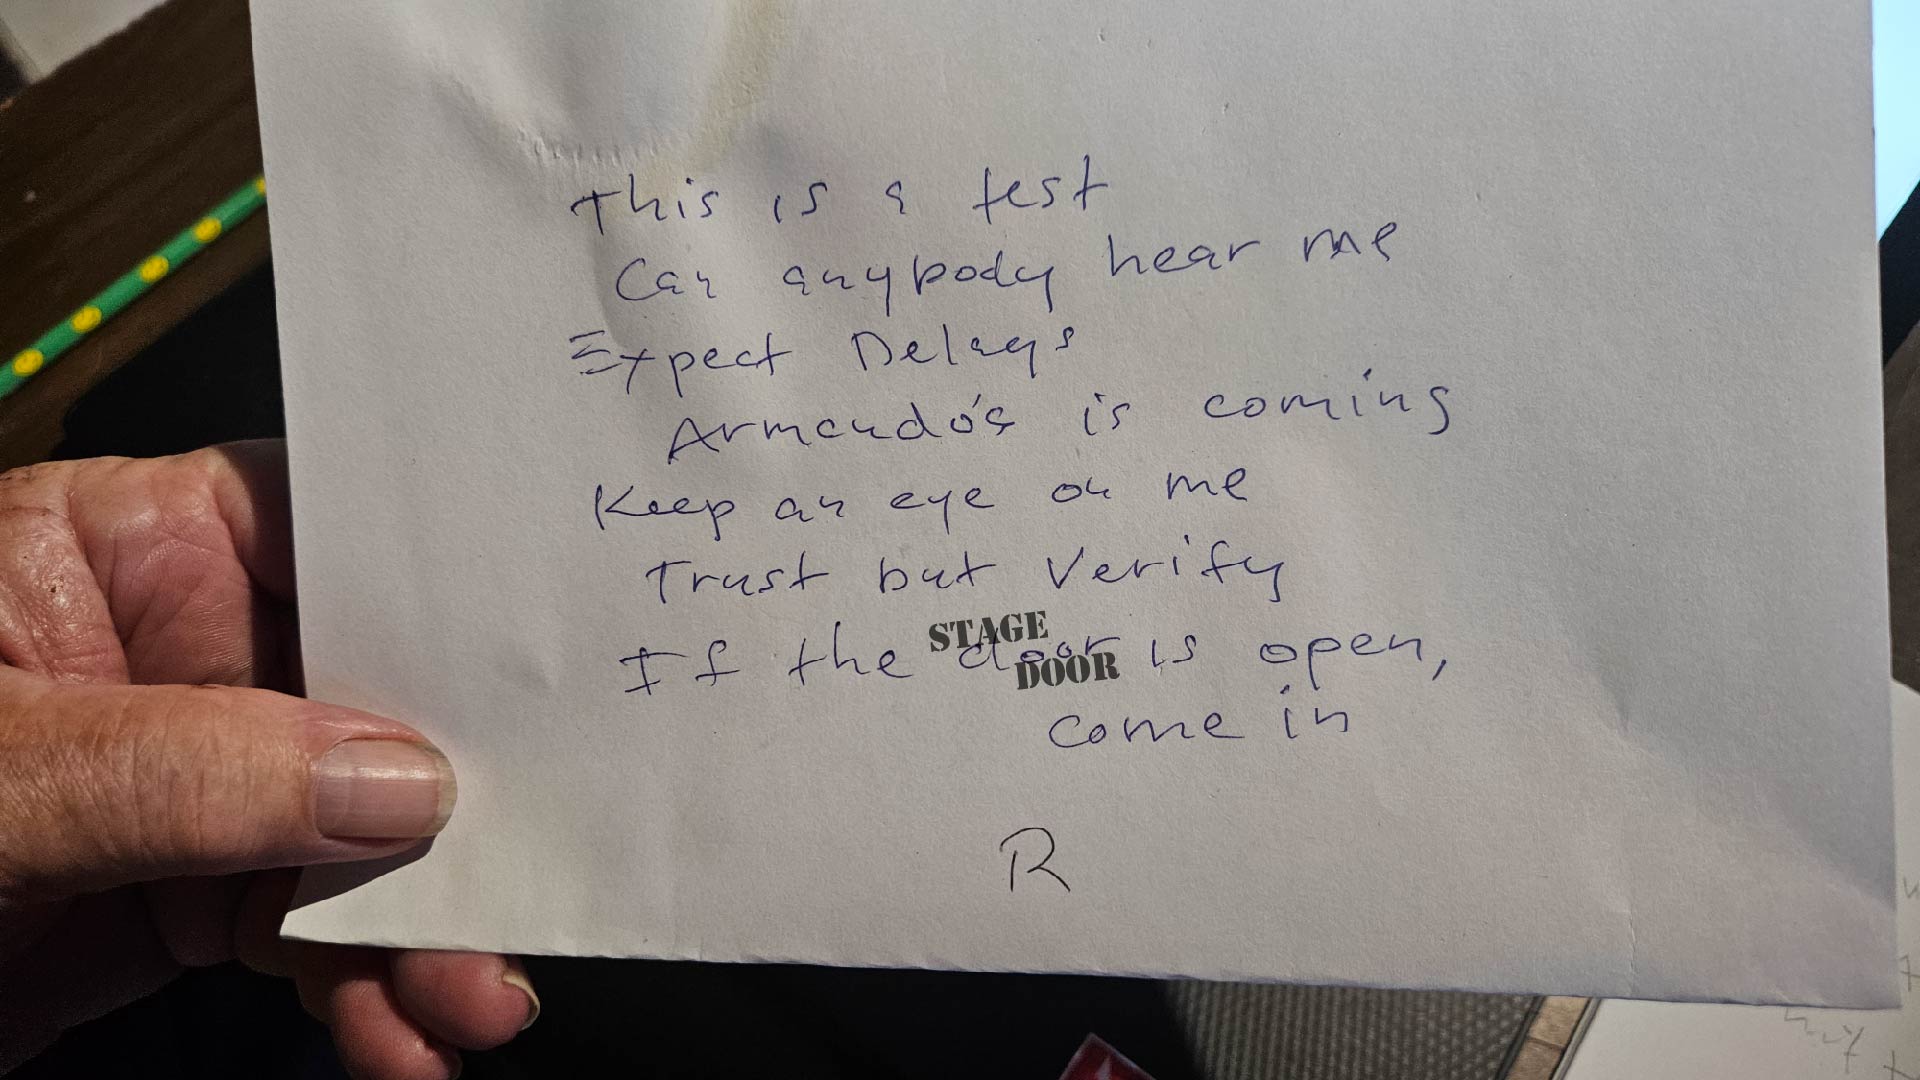 This is a test
Can anybody hear me
Expect Delays
Armando's is coming
Keep an eye on me
Trust but Verify
If the door is open,
come in
STAGE
DOOR
R